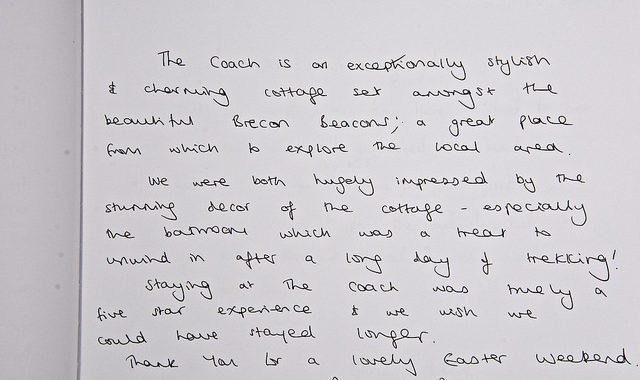 The Coach is an exceptionally stylish
& charming cottage set amongst the
beautiful Brecon Beacons; a great place
from which to explore the local area.
We were both hugely impressed by the
stunning decor of the cottage - especially
the bathroom which was a treat to
unwind in after a long day of trekking!
Staying at The Coach was truely a
five star experience & we wish we
could have stayed longer.
Thank you for a lovely Easter weekend.